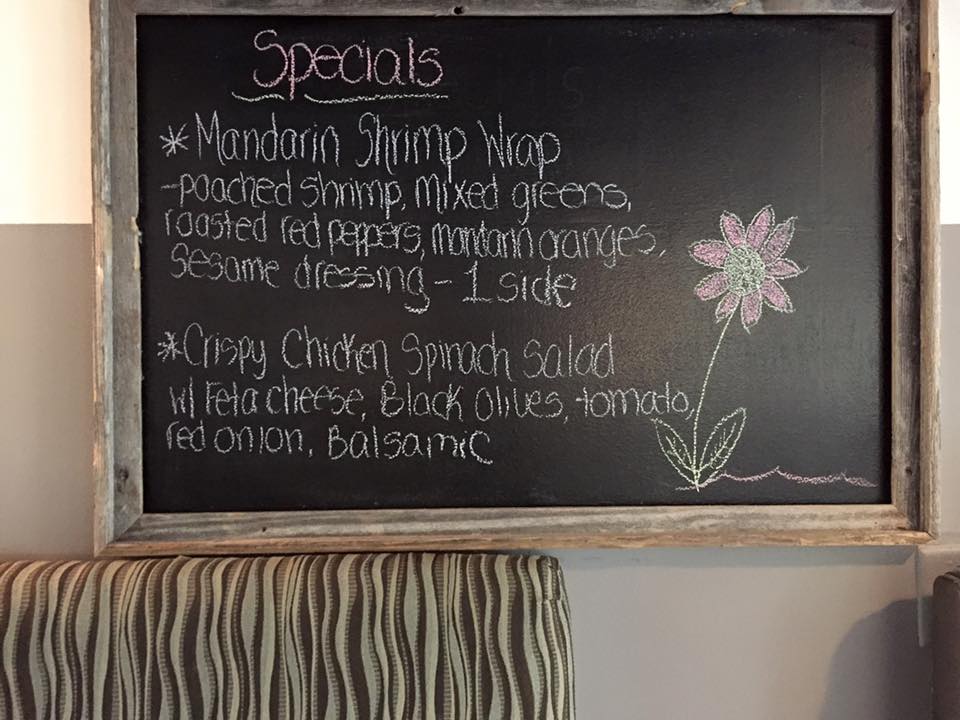 Specials
* Mandarin Shrimp Wrap
- poached shrimp, mixed greens,
roasted red peppers, mandarin oranges,
sesame dressing - 1 side
* Crispy Chicken Spinach Salad
w/ Feta cheese, Black Olives, tomato,
red onion, Balsamic